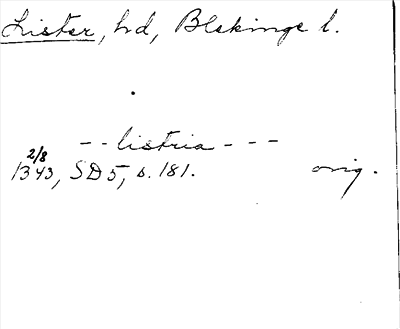 Lister, hd, Blekinge l.
- - listria - - -
2/8
1343, SD 5, s. 181. orig.